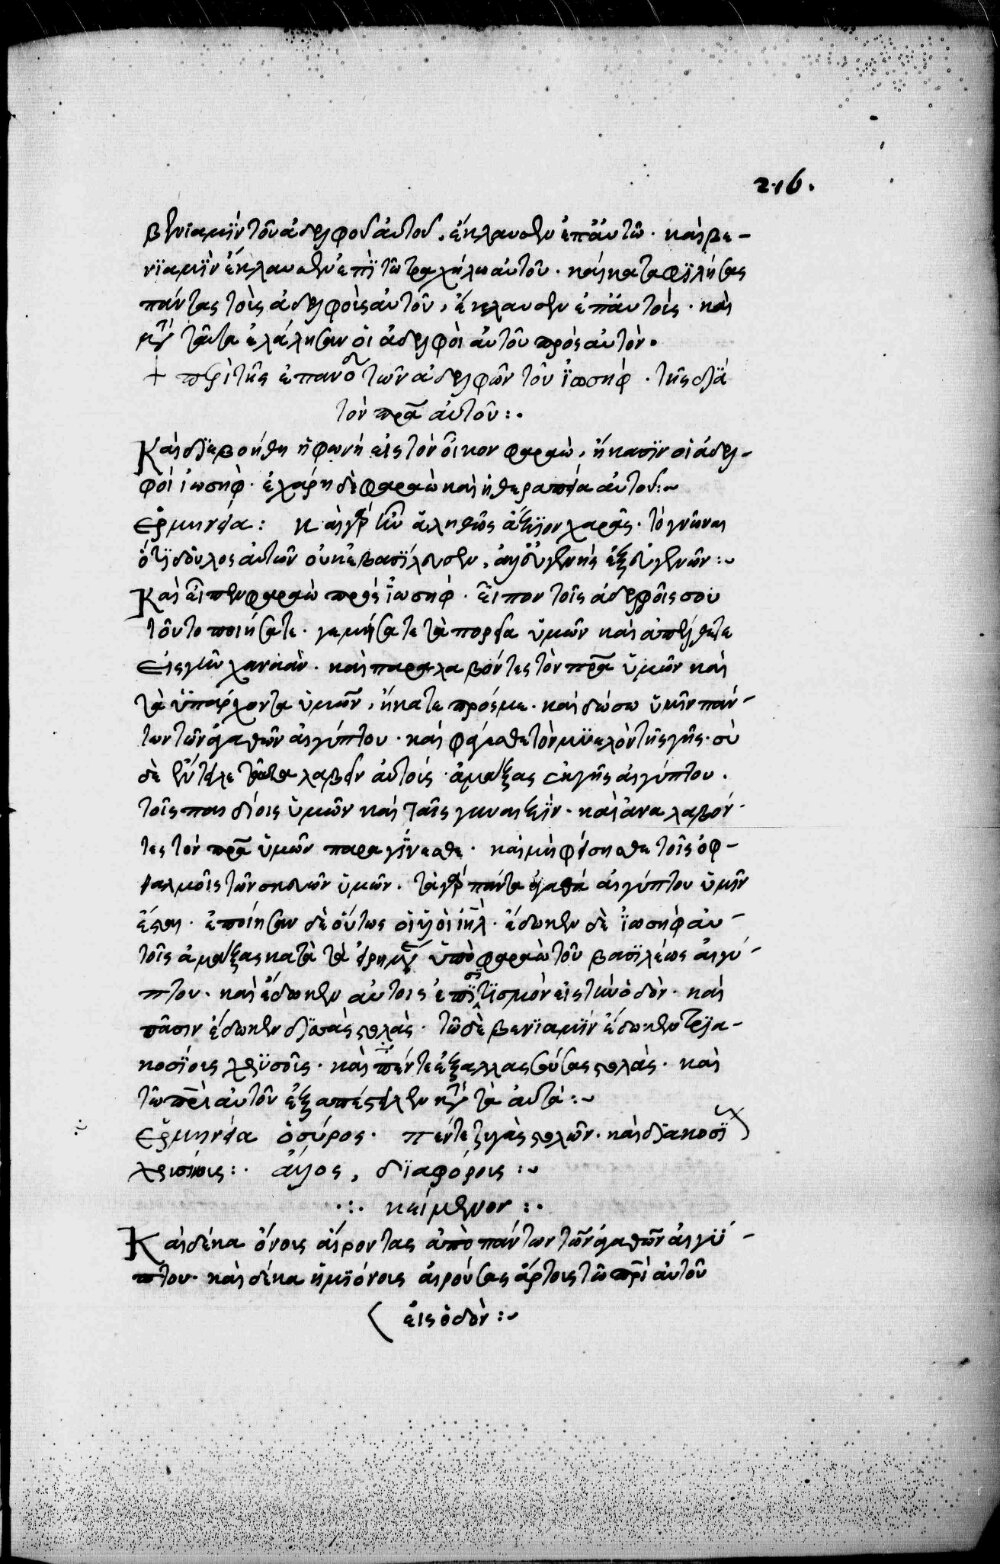 216.
βενϊαμὶν τοῦ ἀδελφοῦ αὐτοῦ, ἔκλαυσεν ἐπ' αὐτῶ· καὶ βε-
νϊαμὶν ἔκλαυσεν ἐπὶ τῶ τραχήλω αὐτοῦ· καὶ καταφιλήσας
πάντας τοὺς ἀδελφοὺς αὐτοῦ, ἔκλαυσεν ἐπ' αὐτοῖς· καὶ
μετὰ ταῦτα ἐλάλησαν οἱ ἀδελφοὶ αὐτοῦ πρὸς αὐτόν.
+ περὶ τῆς ἐπανόδου τῶν ἀδελφῶν τοῦ ἰωσήφ. τῆς διὰ
τὸν πρα αὐτοῦ:.
Καὶ διεβοήθη ἡ φωνὴ εἰς τὸν οἶκον φαραὼ, ἥκασιν οἱ ἀδελ-
φοὶ ἰωσήφ· ἐχάρη δὲ φαραὼ καὶ ἡ θεραπεία αὐτοῦ:~
Ερμηνεία: Καὶ γὰρ ἦν ἀληθῶς ἄξιον χαρᾶς· τὸ γνῶναι
ὅτι δοῦλος αὐτῶν οὐκ ἐβασίλευσεν, ἀλλ' εὐγενὴς ἐξ εὐγενῶν:~
Καὶ εἶπεν φαραὼ πρὸς ἰωσήφ· εἶπον τοῖς ἀδελφοῖς σου
τοῦτο ποιήσατε· γεμίσατε τὰ πορεῖα ὑμῶν καὶ ἀπέλθετε
εἰς γῆν χαναάν· καὶ παραλαβόντες τὸν πρα ὑμῶν καὶ
τὰ ὑπάρχοντα ὑμῶν, ἥκατε πρός με· καὶ δώσω ὑμῖν πάν-
των τῶν ἀγαθῶν αἰγύπτου· καὶ φάγεσθε τὸν μυελὸν τῆς γῆς· σὺ
δὲ ἔντειλε ταῦτα λαβεῖν αὐτοῖς ἁμάξας ἐκ γῆς αἰγύπτου.
τοῖς παιδίοις ὑμῶν καὶ ταῖς γυναιξὶν· καὶ ἀναλαβόν-
τες τὸν πρα ὑμῶν παραγίνεσθε· καὶ μὴ φείσησθε τοῖς ὀφ-
θαλμοῖς τῶν σκευῶν ὑμῶν· τὰ γὰρ πάντα ἀγαθὰ αἰγύπτου ὑμῖν
ἔσται· ἐποίησαν δὲ οὕτως οἱ υἱοὶ ιηλ· ἔδωκεν δὲ ἰωσὴφ αὐ-
τοῖς ἁμάξας κατὰ τὰ εἰρημένα ὑπὸ φαραὼ τοῦ βασιλέως αἰγύ-
πτου· καὶ ἔδωκεν αὐτοῖς ἐπισιτισμὸν εἰς τὴν ὁδόν· καὶ
πᾶσιν ἔδωκεν δισσὰς στολὰς· τῶ δὲ βενϊαμὶν ἔδωκεν τρια-
κοσίους χρυσοῦς· καὶ πέντε ἐξαλλασσούσας στολὰς· καὶ
τῶ πρι αὐτοῦ ἐξαπέστειλεν κατὰ τὰ αὐτά:~
Ερμηνεία ὁ σύρος· πέντε ζυγὰς στολῶν· καὶ διακοσί
χρυσίους:· ἄλλος, διαφόρους:~
·:· κείμενον:·
Καὶ δέκα ὄνους αἴροντας ἀπὸ πάντων τῶν ἀγαθῶν αἰγύ-
πτου· καὶ δέκα ἡμιόνους αἰρούσας ἄρτους τῶ πρι αὐτοῦ
εἰς ὁδόν:~